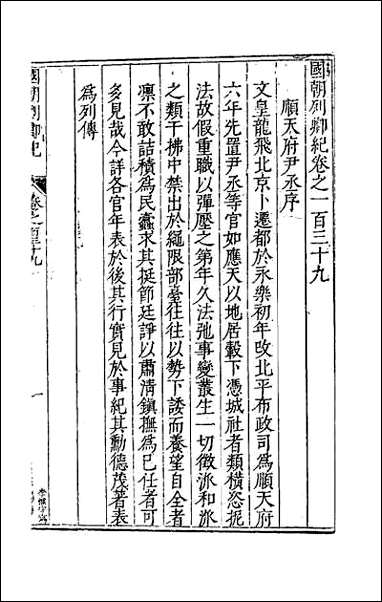 國朝列卿紀卷之一百三十九
順天府尹丞序
文皇龍飛北京卜遷都於永樂初年改北平布政司為順天府
六年先置尹丞等官如應天以地居轂下憑城社者類橫恣扼
法故假重職以彈壓之第年久法弛事變叢生一切徵派和派
之類干拂中禁出於繩限部臺往往以勢下諉而養望自全者
凛不敢詰積為民蠹求其挺節廷諍以肅清鎮撫為己任者可
多見哉今詳各官年表於後其行實見於事紀其勳德茂著表
為列傳
國朝列卿紀
卷之一百三十九
一